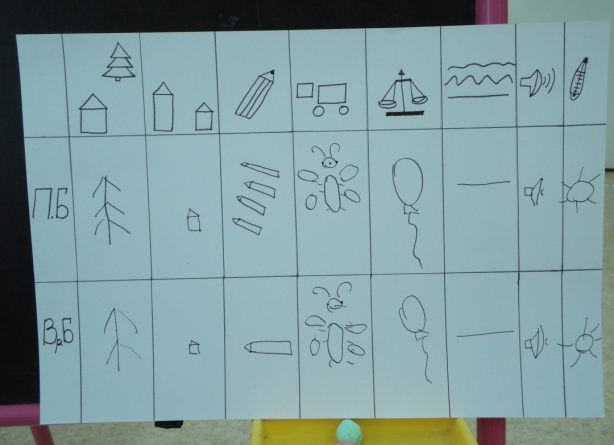 П.Б
Вр.Б